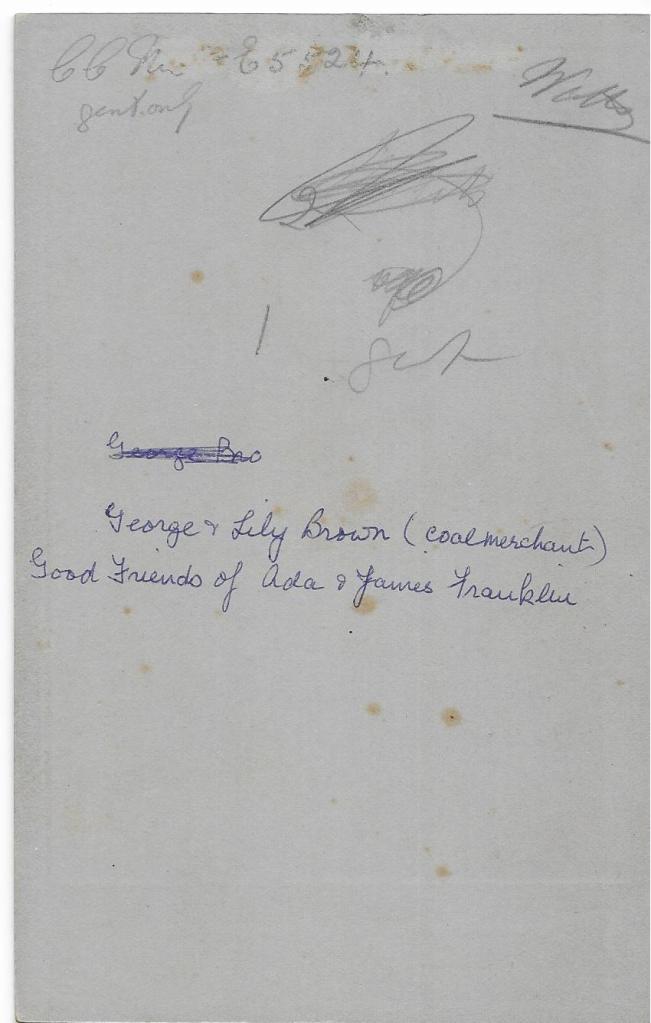 E5524.
gent. only
George Bro
George & Lily Brown (coalmerchant)
Good Friends of Ada & James Franklin